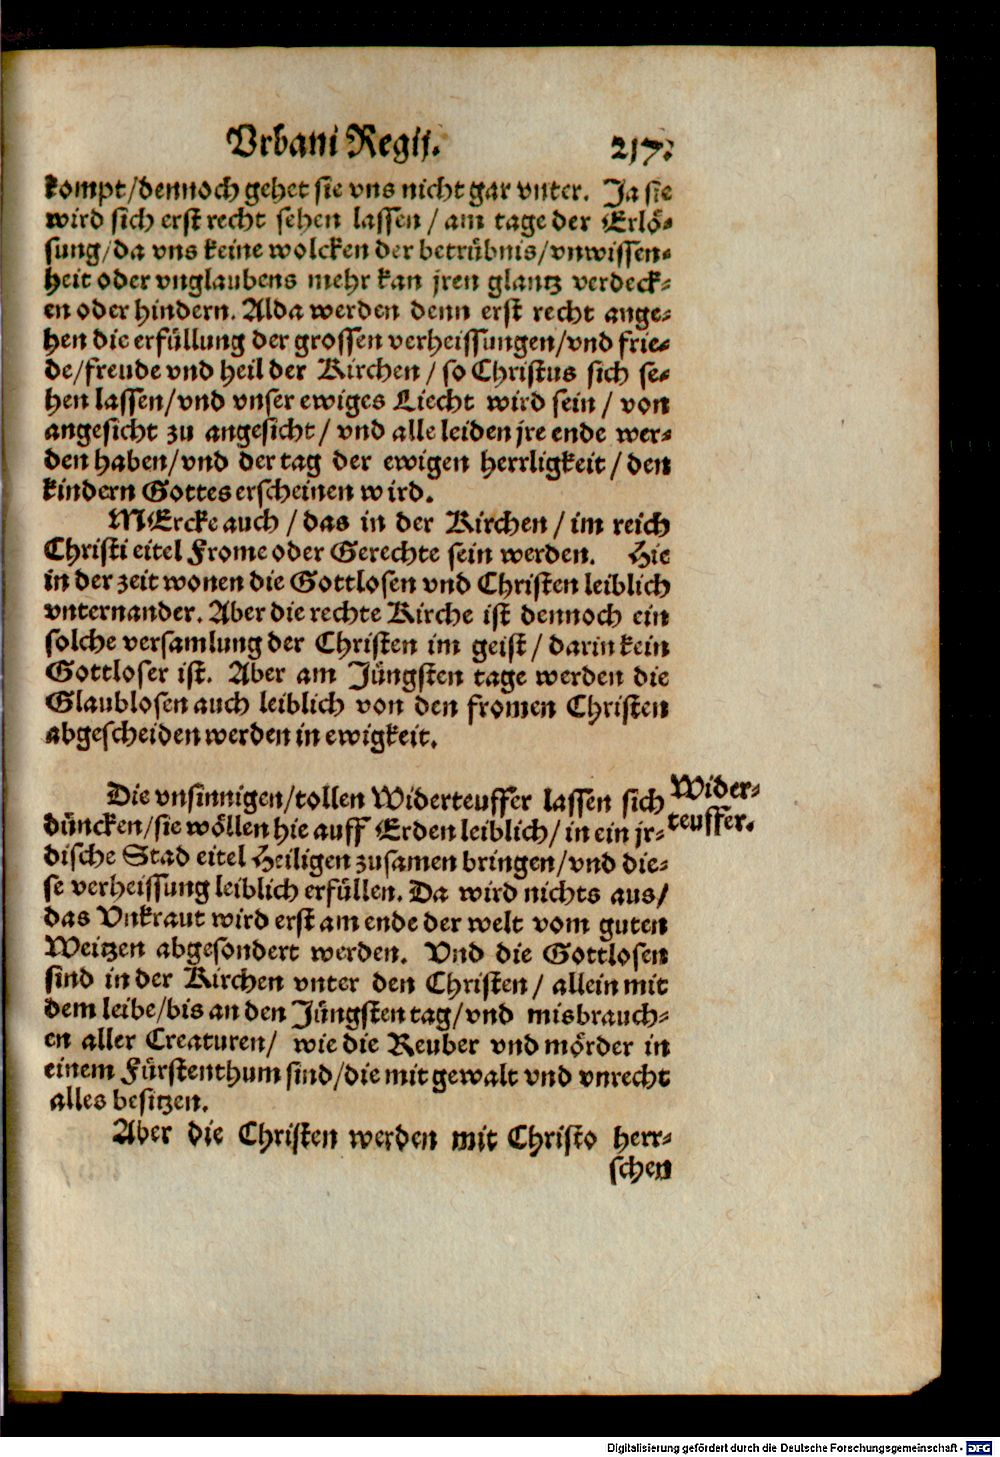 Vrbani Regij. 217.
kompt/dennoch gehet sie vns nicht gar vnter. Ja sie
wird sich erst recht sehen lassen / am tage der Erlö-
sung/da vns keine wolcken der betrübnis/vnwissen-
heit oder vnglaubens mehr kan jren glantz verdeck-
en oder hindern. Alda werden denn erst recht ange-
hen die erfüllung der grossen verheissungen/vnd frie-
de/freude vnd heil der Kirchen / so Christus sich se-
hen lassen/vnd vnser ewiges Liecht wird sein / von
angesicht zu angesicht / vnd alle leiden jre ende wer-
den haben/vnd der tag der ewigen herrligkeit / den
kindern Gottes erscheinen wird.
MErcke auch / das in der Kirchen / im reich
Christi eitel Frome oder Gerechte sein werden. Hie
in der zeit wonen die Gottlosen vnd Christen leiblich
vnternander. Aber die rechte Kirche ist dennoch ein
solche versamlung der Christen im geist / darin kein
Gottloser ist. Aber am Jüngsten tage werden die
Glaublosen auch leiblich von den fromen Christen
abgescheiden werden in ewigkeit.
Die vnsinnigen/tollen Widerteuffer lassen sich
düncken/sie wöllen hie auff Erden leiblich/ in ein jr-
dische Stad eitel Heiligen zusamen bringen/vnd die-
se verheissung leiblich erfüllen. Da wird nichts aus/
das Vnkraut wird erst am ende der welt vom guten
Weitzen abgesondert werden. Vnd die Gottlosen
sind in der Kirchen vnter den Christen / allein mit
dem leibe/bis an den Jüngsten tag/vnd misbrauch-
en aller Creaturen/ wie die Reuber vnd mörder in
einem Fürstenthum sind/die mit gewalt vnd vnrecht
alles besitzen.
Aber die Christen werden mit Christo herr-
schen
Wider-
teuffer.
Digitalisierung gefördert durch die Deutsche Forschungsgemeinschaft - DFG